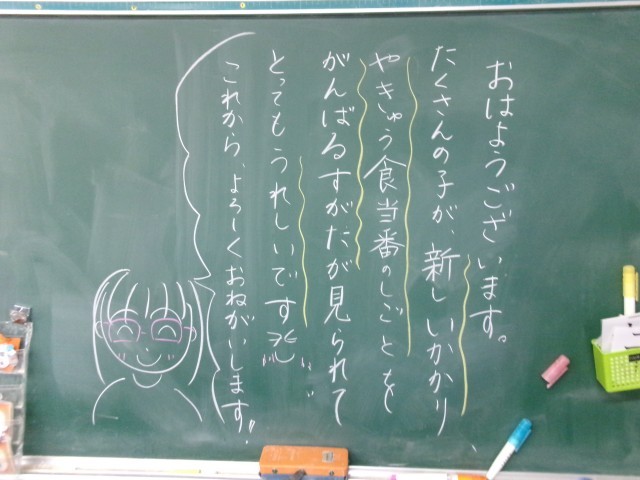 おはようございます。
たくさんの子が、新しいかかり、
やきゅう食当番のしごとを
がんばるすがたが見られて
とってもうれしいです
これから、よろしくおねがいします!!